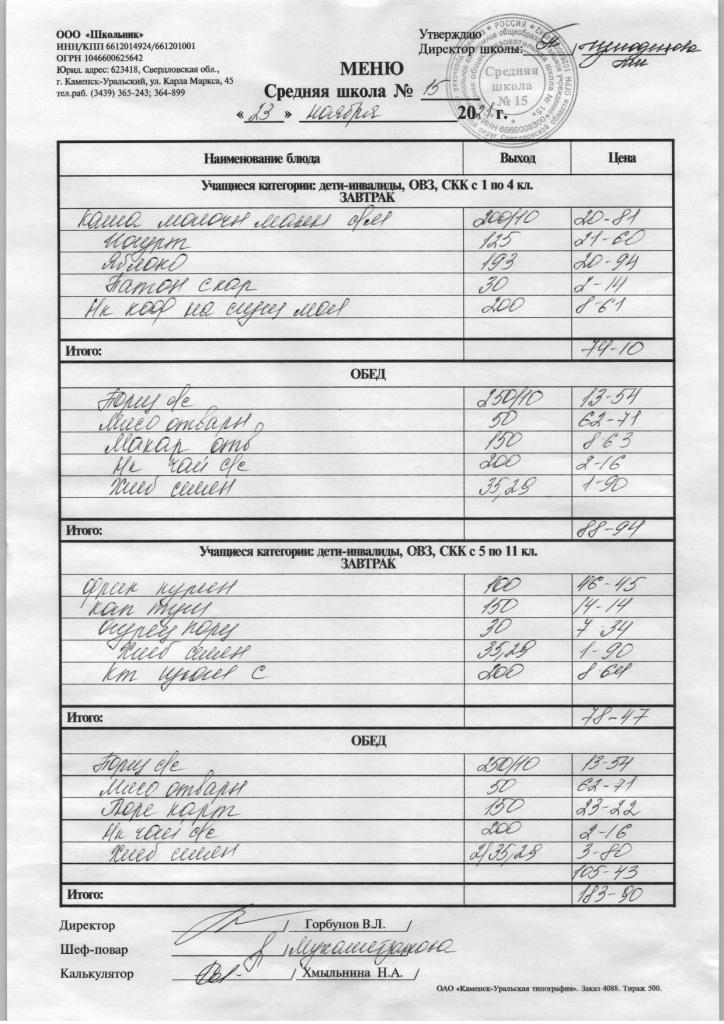 ООО «Школьник»
ИНН/КПП 6612014924/661201001
ОГРН 1046600625642
Юрид. адрес: 623418, Свердловская обл.,
г. Каменск-Уральский, ул. Карла Маркса, 45
тел.раб. (3439) 365-243; 364-899
Утверждаю
Директор школы:
Средняя
школа
№ 15
МЕНЮ
Средняя школа № 15
« 23 » ноября 2021 г.
Наименование блюда Выход Цена
Учащиеся категории: дети-инвалиды, ОВЗ, СКК с 1 по 4 кл.
ЗАВТРАК
Каша молочн манн с/м 200/10 20-81
Йогурт 125 21-60
Яблоко 193 20-94
Батон 30 2-14
Нк коф на 200 8-61
Итого: 79-10
ОБЕД
Борщ с/с 250/10 13-54
Мясо отварн 50 62-71
Макар отв 150 8-63
Нк чай с/с 200 2-16
Хлеб 35,29 1-90
Итого: 88-94
Учащиеся категории: дети-инвалиды, ОВЗ, СКК с 5 по 11 кл.
ЗАВТРАК
Фрик курин 100 46-45
Кап туш 150 14-14
Огурец порц 30 7-34
Хлеб 35,29 1-90
Кт 200 8-64
Итого: 78-47
ОБЕД
Борщ с/с 250/10 13-54
Мясо отварн 50 62-71
Пюре карт 150 23-22
Нк чай с/с 200 2-16
Хлеб 2/35,29 3-80
105-43
Итого: 183-90
Директор / Горбунов В.Л. /
Шеф-повар /
Калькулятор / Хмыльнина Н.А. /
ОАО «Каменск-Уральская типография». Заказ 4088. Тираж 500.